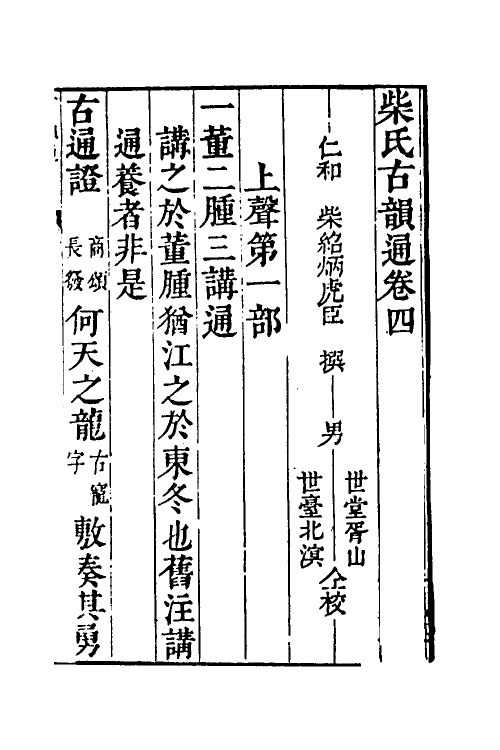 柴氏古韻通卷四
仁和 柴紹炳虎臣 撰 男 世堂胥山 世臺北溟 仝校
上聲第一部
一董二腫三講通
講之於董腫猶江之於東冬也舊注講
通養者非是
古通證 商頌長發 何天之龍 古寵字 敷奏其勇